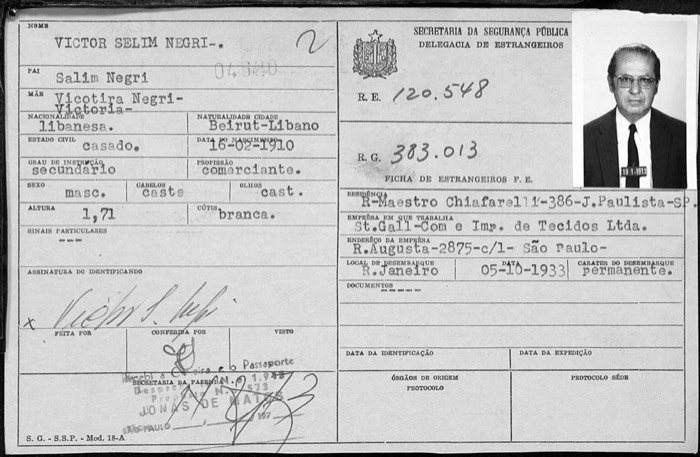 NOME
VICTOR SELIM NEGRI-.
2
PAI
Salim Negri
MÃE
Vicotira Negri-
Victoria-
NACIONALIDADE
libanesa.
NATURALIDADE CIDADE
Beirut-Libano
ESTADO CIVIL
casado.
DATA DO NASCIMENTO
16-02-1910
GRAU DE INSTRUÇÃO
secundário
PROFISSÃO
comerciante.
SEXO
masc.
CABELOS
casts
OLHOS
cast.
ALTURA
1,71
CÚTIS
branca.
SINAIS PARTICULARES
---
ASSINATURA DO IDENTIFICANDO
x Victor S. Negri
FEITA POR
CONFERIDA POR
VISTO
e o Passaporte
SECRETARIA DA FAZENDA
JONAS DE MATOS
SÃO PAULO
S. G. - S.S.P. - Mod. 18-A
SECRETARIA DA SEGURANÇA PÚBLICA
DELEGACIA DE ESTRANGEIROS
R. E. 120.548
R. G. 383.013
FICHA DE ESTRANGEIROS F. E.
RESIDÊNCIA
R-Maestro Chiafarelli-386-J.Paulista-SP.
EMPRÊSA EM QUE TRABALHA
St.Gall-Com e Imp. de Tecidos Ltda.
ENDERÊÇO DA EMPRÊSA
R.Augusta-2875-c/1- São Paulo-
LOCAL DE DESEMBARQUE
R.Janeiro
DATA
05-10-1933
CARATER DO DESEMBARQUE
permanente.
DOCUMENTOS
-----
DATA DA IDENTIFICAÇÃO
DATA DA EXPEDIÇÃO
ÓRGÃOS DE ORIGEM
PROTOCOLO
PROTOCOLO SÉDE